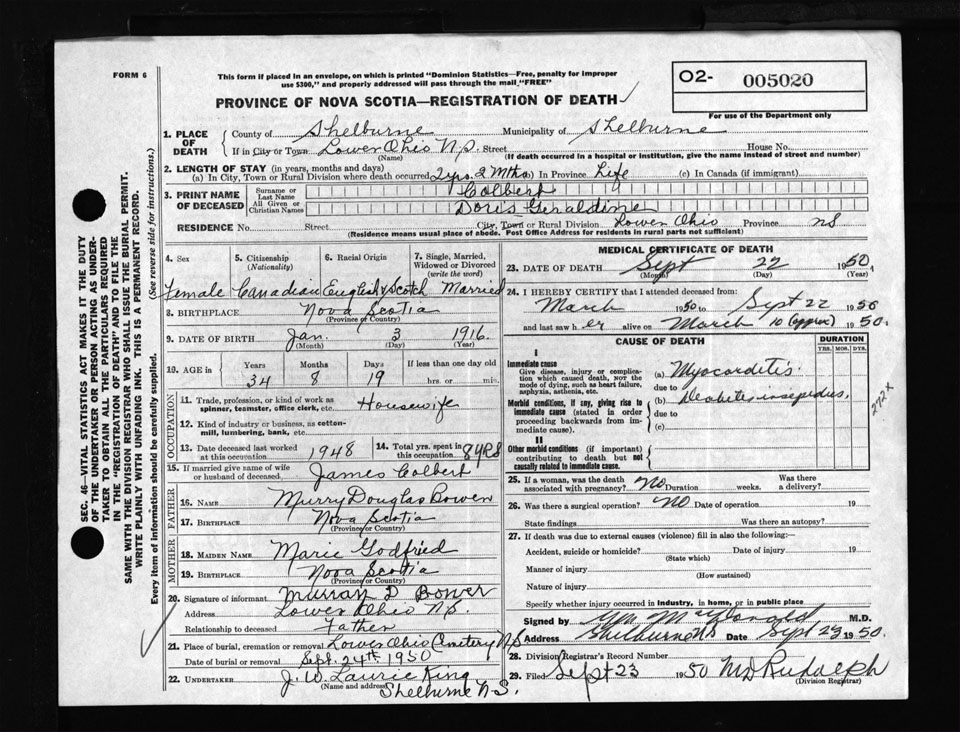 FORM 6
This form if placed in an envelope, on which is printed "Dominion Statistics—Free, penalty for improper
use $300," and properly addressed will pass through the mail "FREE"
O2- 005020
PROVINCE OF NOVA SCOTIA—REGISTRATION OF DEATH
For use of the Department only
SEC. 46—VITAL STATISTICS ACT MAKES IT THE DUTY
OF THE UNDERTAKER OR PERSON ACTING AS UNDER-
TAKER TO OBTAIN ALL THE PARTICULARS REQUIRED
IN THE "REGISTRATION OF DEATH" AND TO FILE THE
SAME WITH THE DIVISION REGISTRAR WHO SHALL ISSUE THE BURIAL PERMIT.
WRITE PLAINLY WITH UNFADING INK. THIS IS A PERMANENT RECORD.
Every item of information should be carefully supplied. (See reverse side for instructions.)
1. PLACE OF DEATH County of Shelburne Municipality of Shelburne
If in City or Town Lower Ohio N.S. Street House No.
(Name) (If death occurred in a hospital or institution, give the name instead of street and number)
2. LENGTH OF STAY (in years, months and days)
(a) In City, Town or Rural Division where death occurred 2 yrs. 2 Mths (b) In Province Life (c) In Canada (if immigrant)
3. PRINT NAME OF DECEASED Surname or Last Name Colbert
All Given or Christian Names Doris Geraldine
RESIDENCE No. Street City, Town or Rural Division Lower Ohio Province NS
(Residence means usual place of abode. Post Office Address for residents in rural parts not sufficient)
4. Sex 5. Citizenship (Nationality) 6. Racial Origin 7. Single, Married, Widowed or Divorced (write the word)
Female Canadian English & Scotch Married
8. BIRTHPLACE Nova Scotia
(Province or Country)
9. DATE OF BIRTH Jan. 3 1916
(Month) (Day) (Year)
10. AGE in Years Months Days If less than one day old
34 8 19 hrs. or min.
OCCUPATION
11. Trade, profession or kind of work as spinner, teamster, office clerk, etc. Housewife
12. Kind of industry or business, as cotton-mill, lumbering, bank, etc.
13. Date deceased last worked at this occupation 1948 14. Total yrs. spent in this occupation 8 YRS
15. If married give name of wife or husband of deceased James Colbert
FATHER
16. NAME Murry Douglas Bower
17. BIRTHPLACE Nova Scotia
(Province or Country)
MOTHER
18. MAIDEN NAME Marie Godfried
19. BIRTHPLACE Nova Scotia
(Province or Country)
20. Signature of informant Murray D Bower
Address Lower Ohio N.S.
Relationship to deceased Father
21. Place of burial, cremation or removal Lower Ohio Cemetery N.S
Date of burial or removal Sept. 24th 1950
22. UNDERTAKER J. W. Laurie King
(Name and address) Shelburne N.S.
MEDICAL CERTIFICATE OF DEATH
23. DATE OF DEATH Sept 22 1950
(Month) (Day) (Year)
24. I HEREBY CERTIFY that I attended deceased from:
March 1950 to Sept 22 1950
and last saw her alive on March 10 (approx) 1950.
CAUSE OF DEATH DURATION
YRS. MOS. DYS.
I
Immediate cause
Give disease, injury or complication which caused death, NOT the mode of dying, such as heart failure, asphyxia, asthenia, etc.
(a) Myocarditis
due to
Morbid conditions, if any, giving rise to immediate cause (stated in order proceeding backwards from immediate cause).
(b) Diabetes insipidus,
due to
(c)
272X
II
Other morbid conditions (if important) contributing to death but not causally related to immediate cause.
25. If a woman, was the death associated with pregnancy? No Duration weeks. Was there a delivery?
26. Was there a surgical operation? No Date of operation 19
State findings Was there an autopsy?
27. If death was due to external causes (violence) fill in also the following:—
Accident, suicide or homicide? Date of injury 19
(State which)
Manner of injury
(How sustained)
Nature of injury
Specify whether injury occurred in industry, in home, or in public place
Signed by MacDonald M.D.
Address Shelburne NS Date Sept 23 1950.
28. Division Registrar's Record Number
29. Filed Sept 23 1950 MD Rudolph
(Division Registrar)